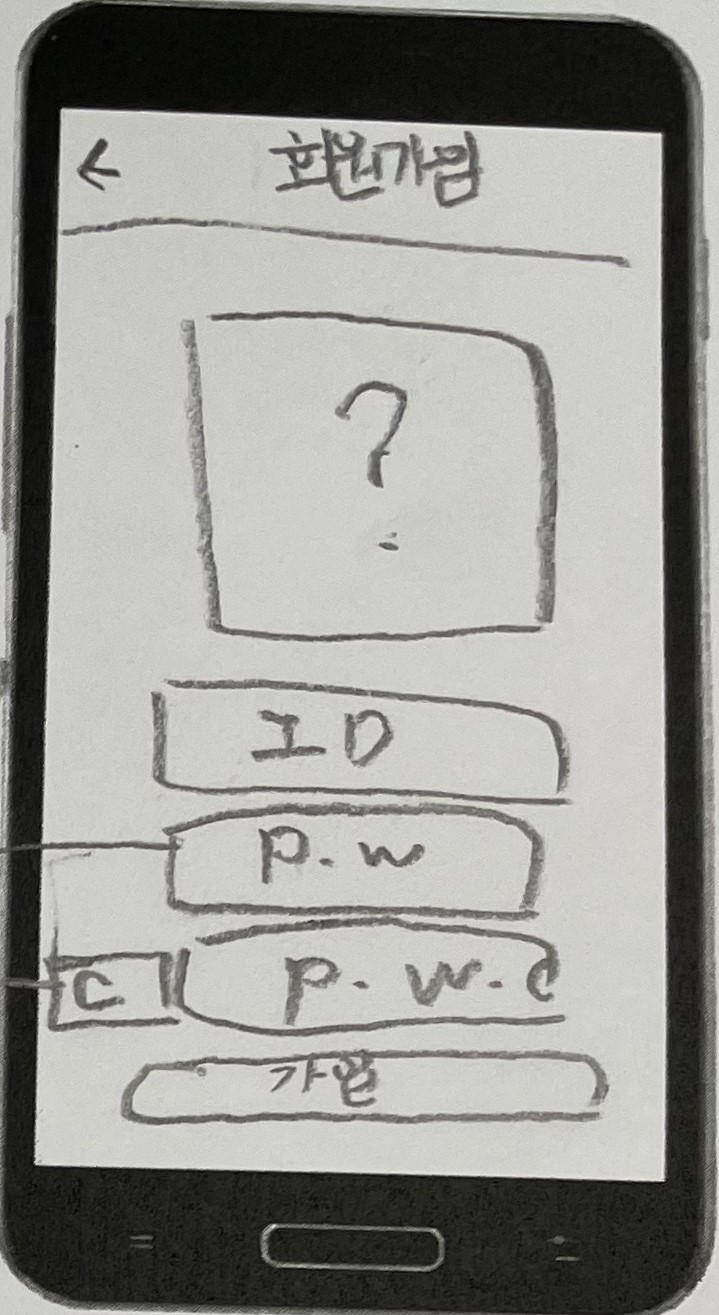 ← 회원가입
?
ID
P.W
C P.W.C
가입